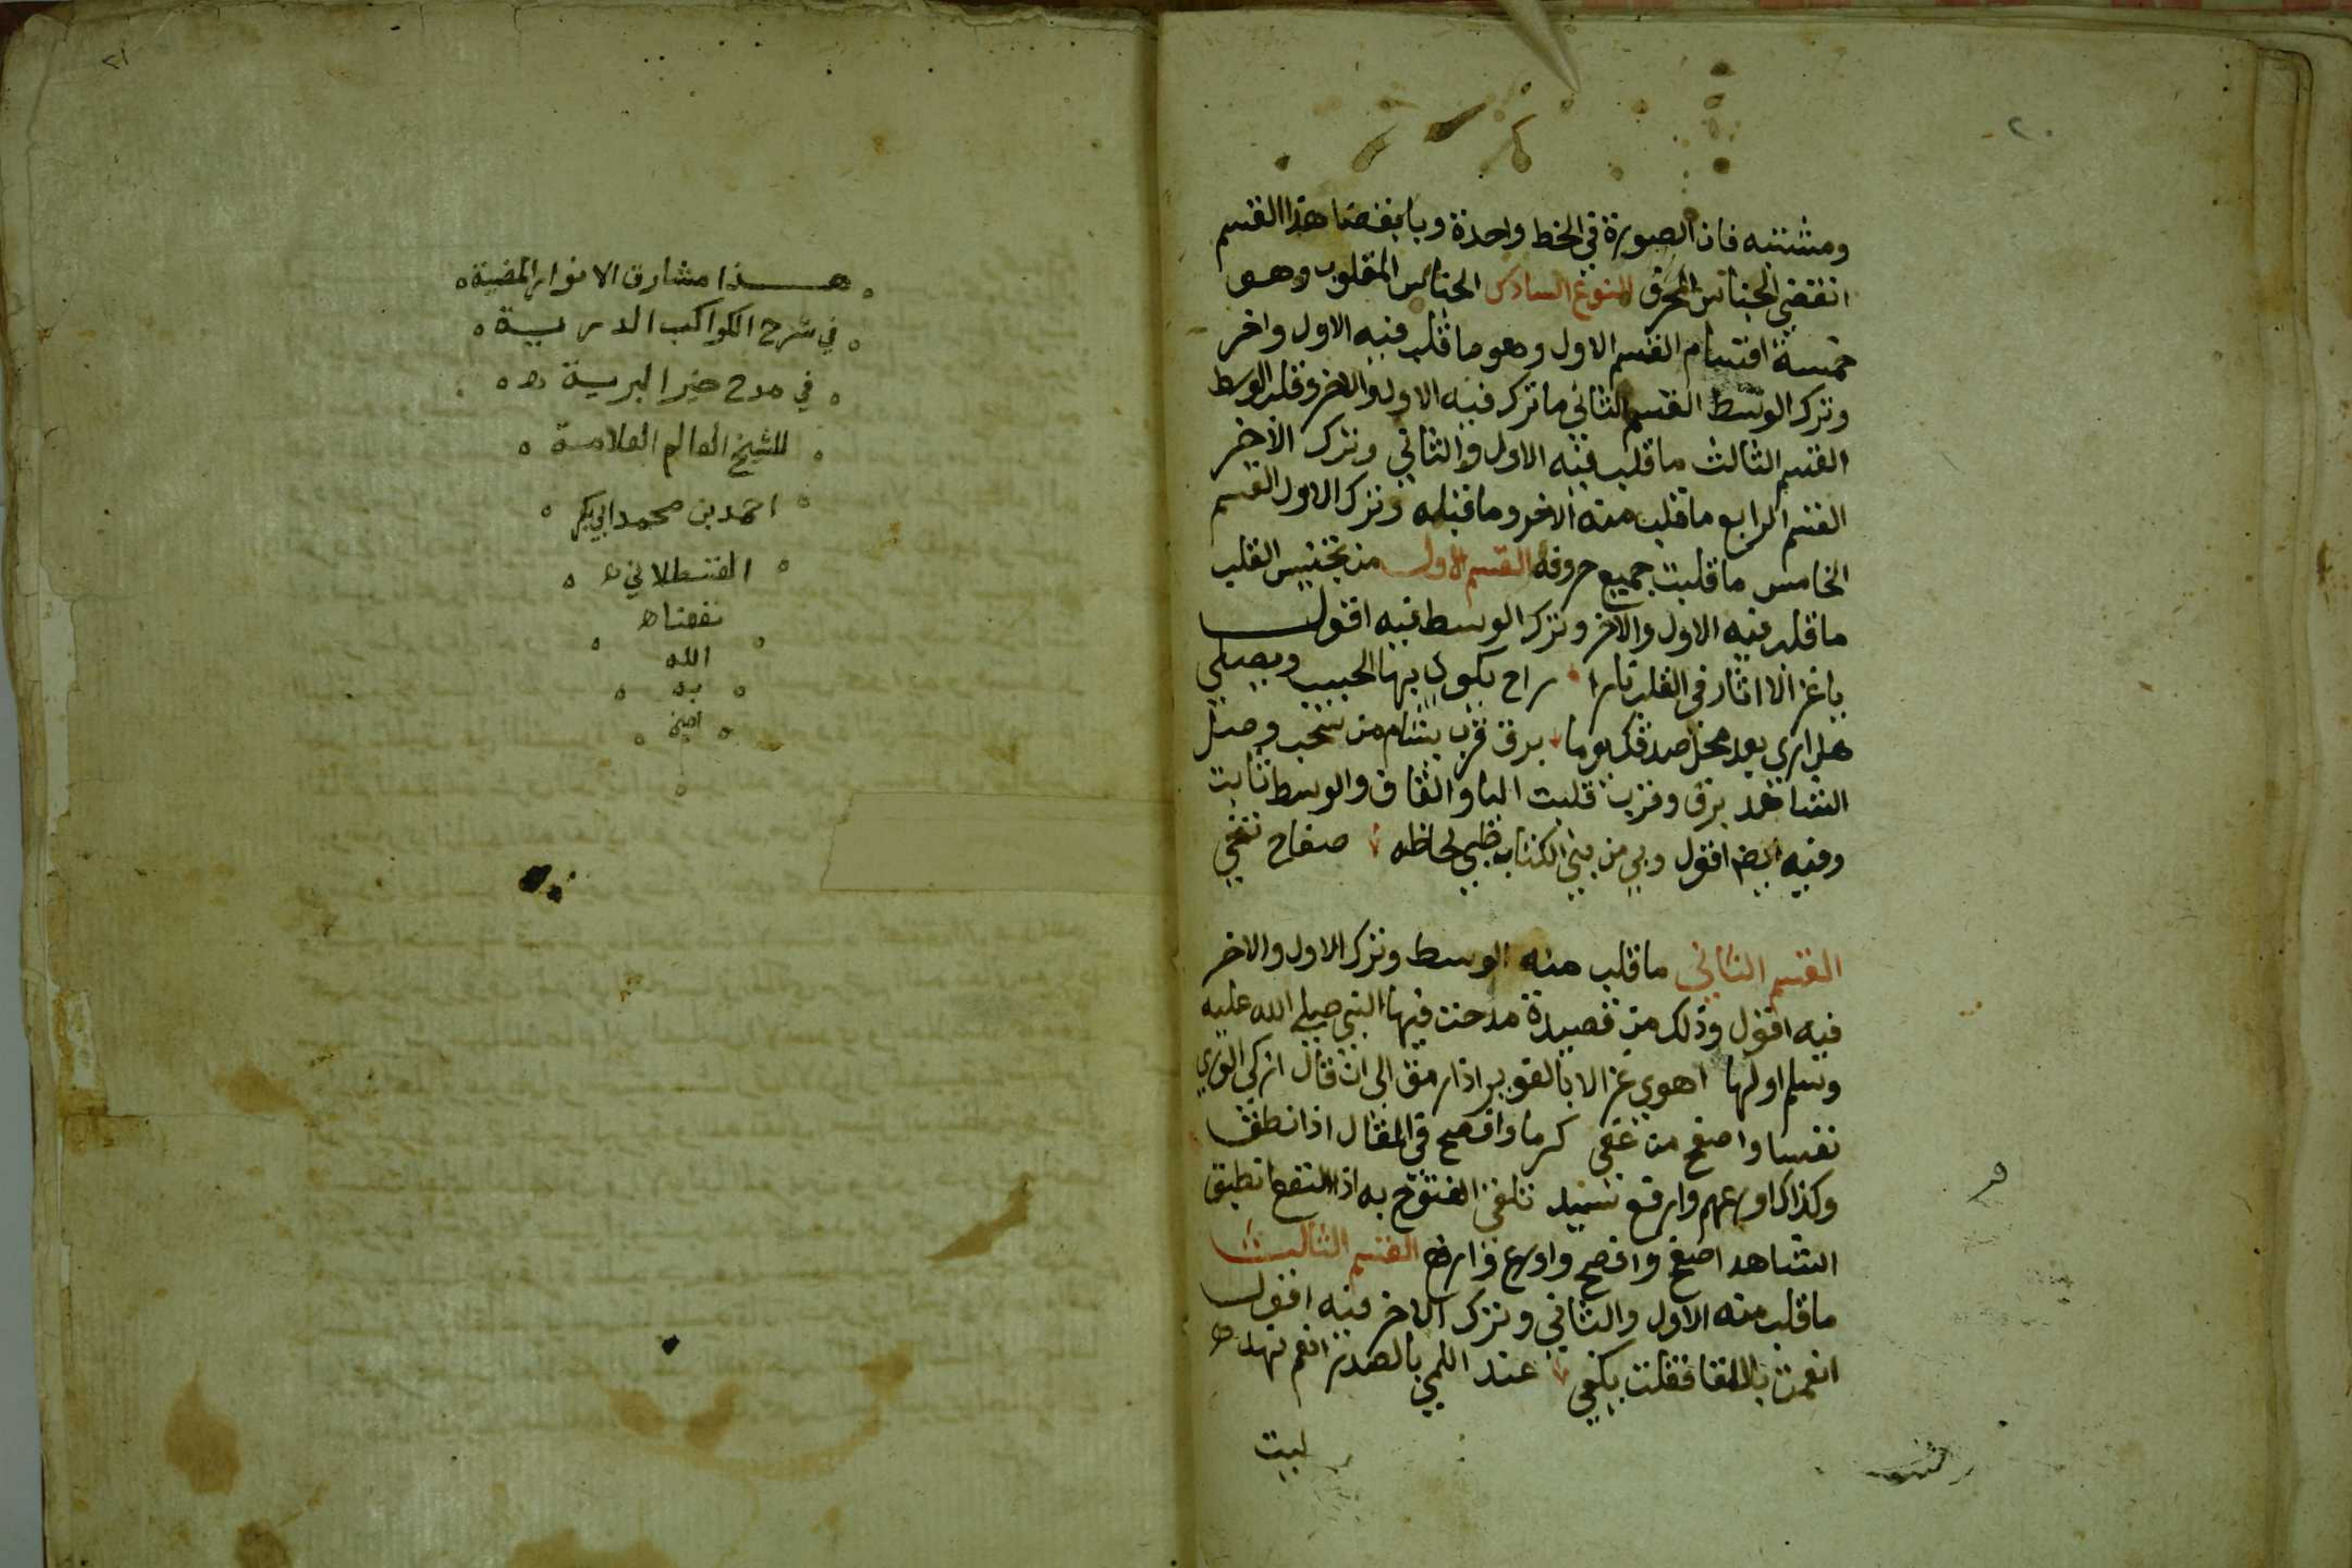 ٢٠
ومشتبه فان الصورة في الخط واحدة وبانقضا هذا القسم
انقضي الجناس المحرق النوع السادس الجناس المقلوب وهو
خمسة اقسام القسم الاول وهو ما قلب فيه الاول واخر
وترك الوسط القسم الثاني ما ترك فيه الاول والاخر وقلب الوسط
القسم الثالث ما قلب فيه الاول والثاني وترك الاخر
القسم الرابع ما قلب منه الاخر وما قبله وترك الاول القسم
الخامس ما قلبت جميع حروفه القسم الاول من تجنيس القلب
ما قلب فيه الاول والاخر وترك الوسط فيه اقول
يا غزالا اثار في القلب نارا راح يكوي بها الحبيب ويصلي
هل اري بعد محل صدك يوما برق قرب يشام من سحب وصل
الشاهد برق وقرب قلبت البا والقاف والوسط ثابت
وفيه ايضا اقول وبي من بني الكتاب ظبي لحاظه صفاح
القسم الثاني ما قلب منه الوسط وترك الاول والاخر
فيه اقول وذلك من قصيدة مدحت فيها النبي صلي الله عليه
وسلم اولها اهوي غزالا بالغوير اذا رمق الى ان قال ازكي الوري
نفسا واصفح من عفي كرما وافصح في المقال اذا نطق
وكذاك اورعهم وارفع سيد تلفي الفتوح به اذا النقع انطبق
الشاهد اصفح وافصح واورع وارفع القسم الثالث
ما قلب منه الاول والثاني وترك الاخر فيه اقول
انعمت باللقا فقلت يكفي عند اللمي بالصدر انعم نهده
ليت
٢١
هذا مشارق الانوار المضية
في شرح الكواكب الدرية
في مدح خير البرية
للشيخ العالم العلامة
احمد بن محمد ابي بكر
القسطلاني
نفعنا
الله
به
امين